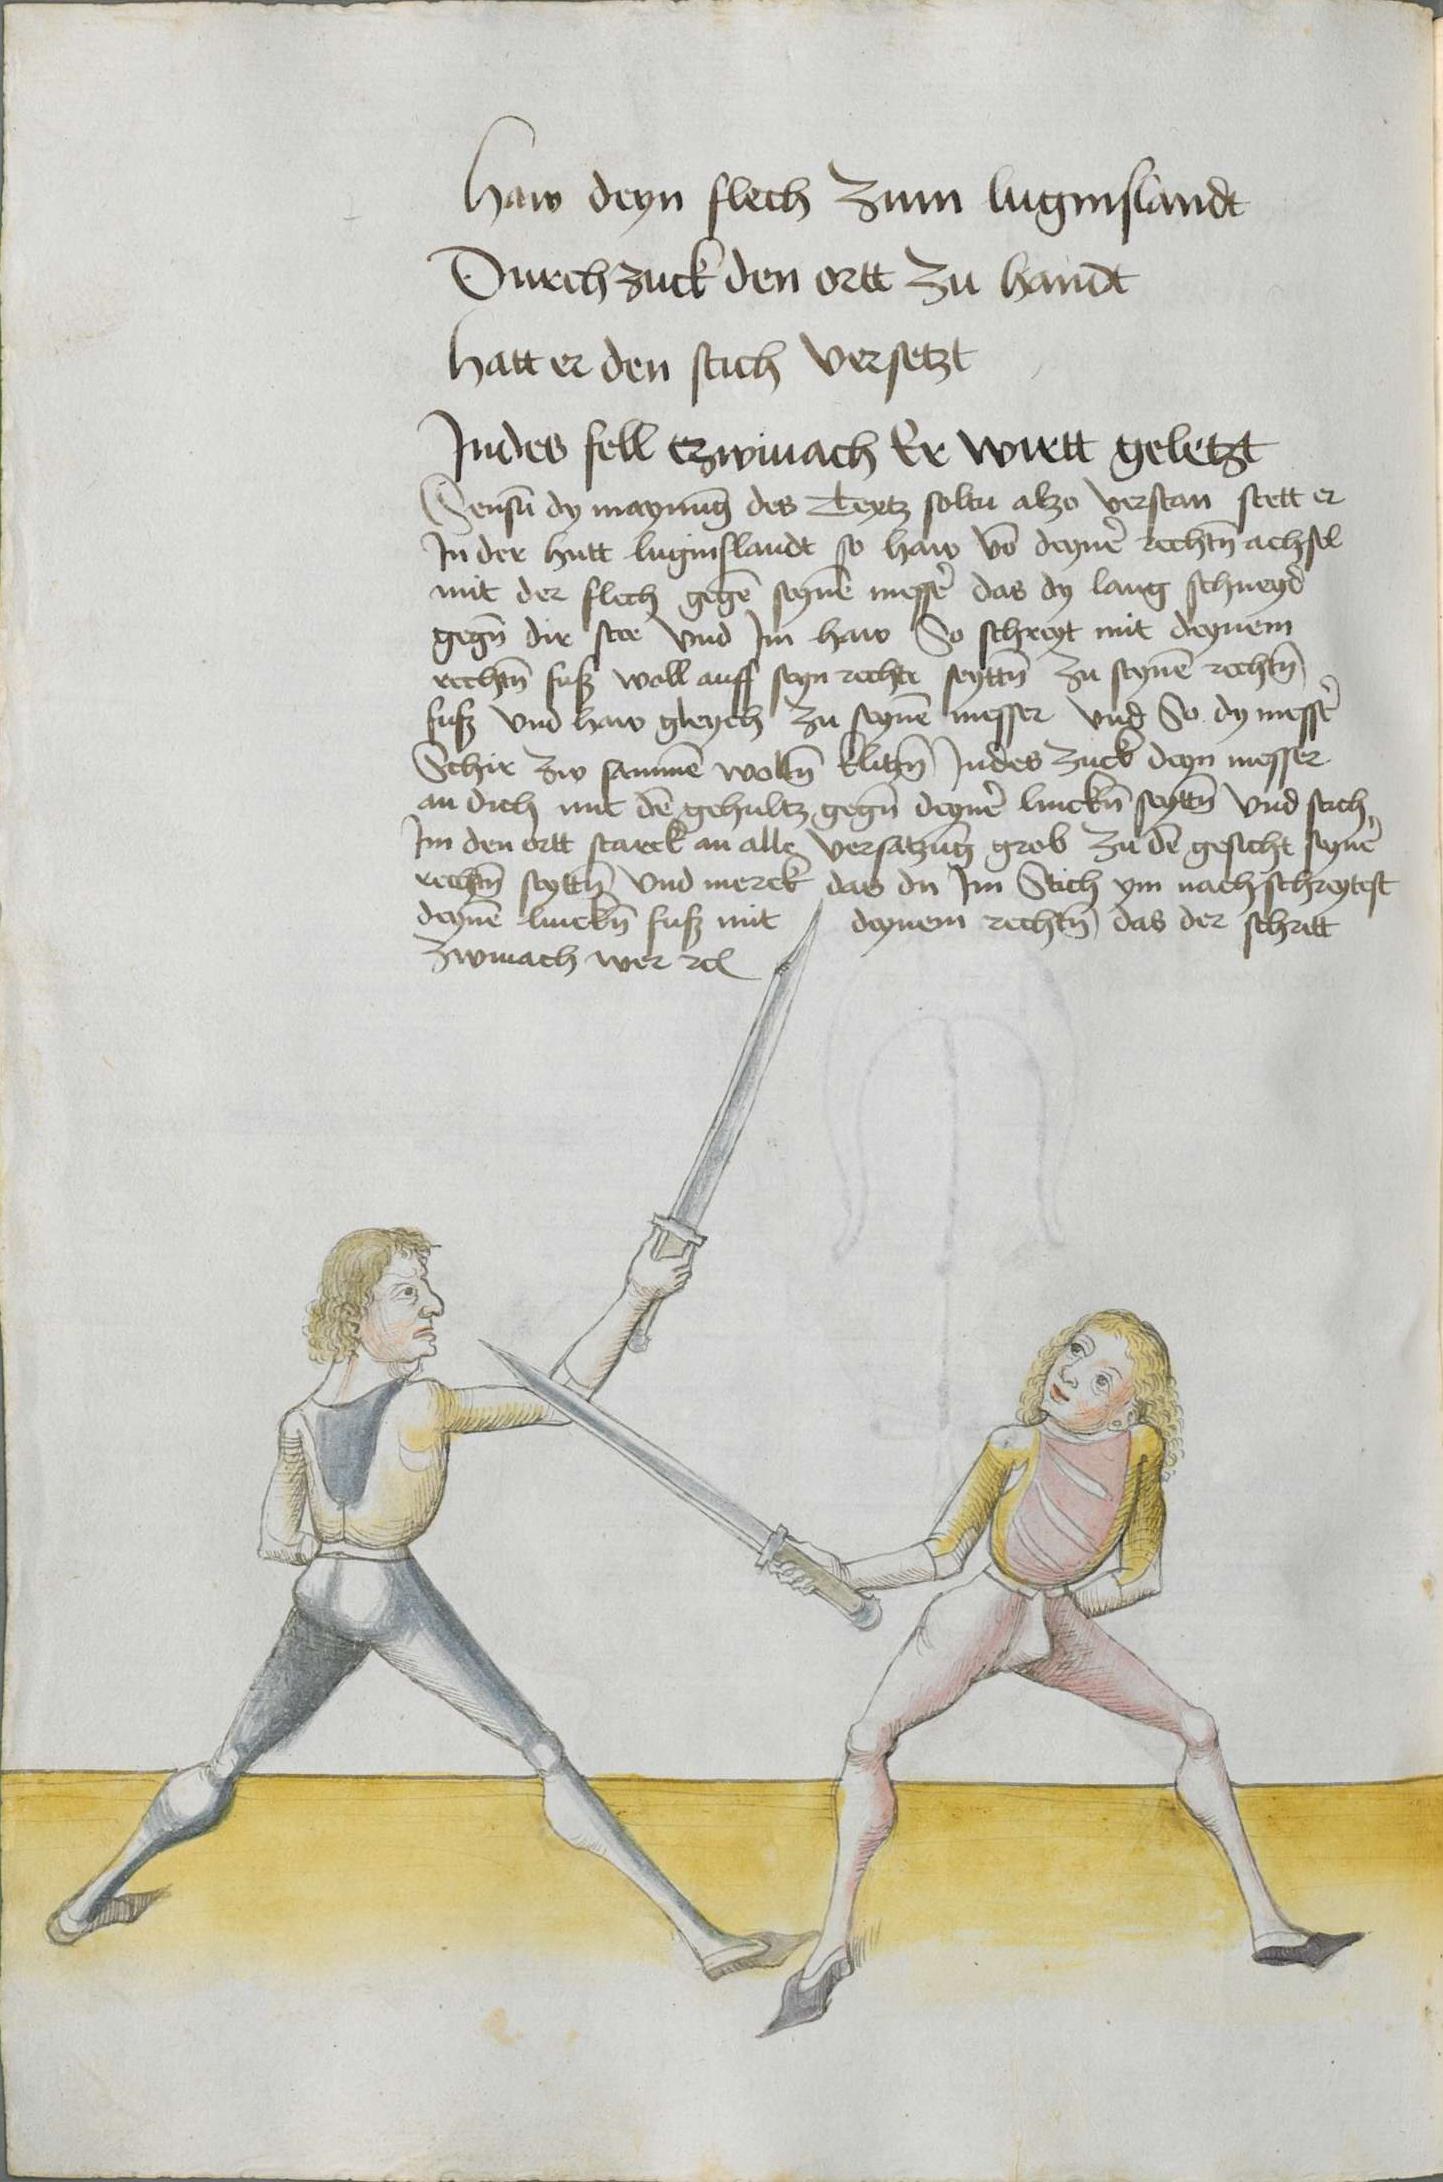 Haw deyn flech zum luginslandt
Durchzuck den ortt zu handt
hatt er den stich versetzt
Indes fell tzwinach Er wirtt geletzt
Sensū dy maynūg des Textz soltu alzo verstan stett er
In der hutt luginslandt so haw vō deyner̄ rechtn̄ achsel
mit der flech gegē seynē messer̄ das dy lang schneyd
gegn̄ dir stee vnd Im haw So schreyt mit deynem
rechtn̄ fusz woll auff seyn rechte seyttn̄ zu seynē rechtn̄
fusz vnd haw gleych zu seynē messer vnd So dy messer̄
Schir zw sammē wolln̄ klitzn̄ Indes zuck deyn messer
an dich mit dē gehultz gegn̄ deyner̄ linckn̄ seyttn̄ vnd stich
Im den ortt starck an alle versatzūg grob zu dē gesicht seyner̄
rechtn̄ seyttn̄ vnd merck das du Im Stich ym nachschreytest
deynē linckn̄ fusz mit deynem rechtn̄ das der schritt
zwinach wer